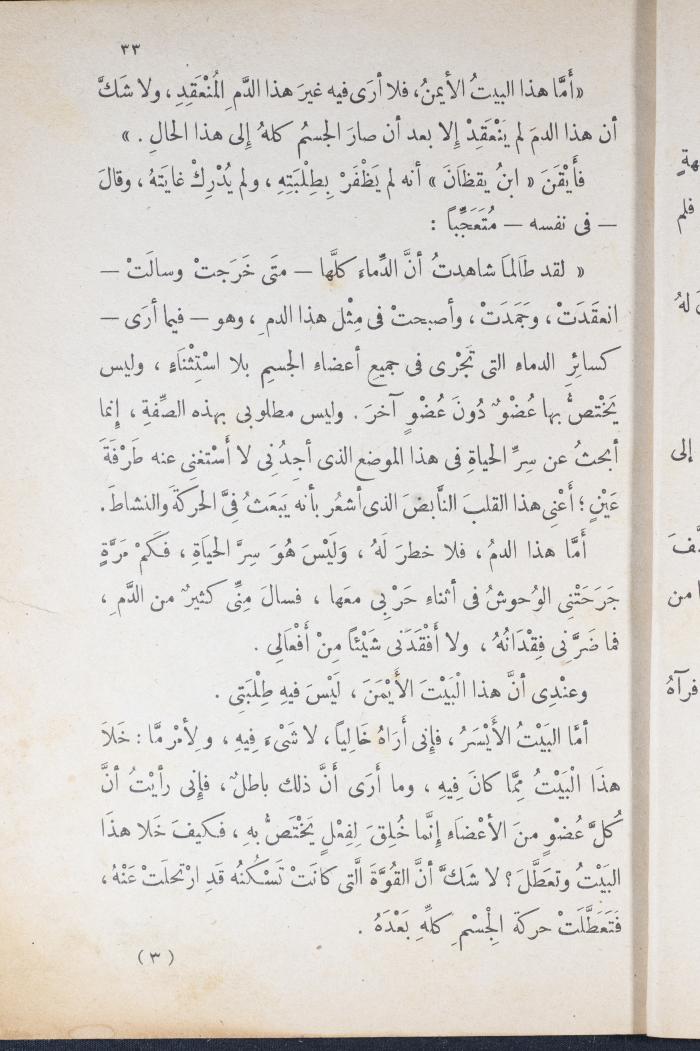 ٣٣
«أَمَّا هذا البيتُ الأيمنُ، فلا أرَى فيه غيرَ هذا الدَّمِ الْمُنْعَقِدِ، ولا شَكَّ
أن هذا الدمَ لم يَنْعَقِدْ إلا بعد أن صارَ الجسمُ كلهُ إلى هذا الحالِ.»
فأَيْقَنَ «ابنُ يقظَانَ» أنه لم يَظْفَرْ بِطِلْبَتِهِ، ولم يُدْرِكْ غايَتَهُ، وقالَ
— فى نفسه — مُتَعَجِّباً :
« لقد طَالمَا شاهدتُ أنَّ الدِّماءَ كلَّها — متَى خَرَجتْ وسالَتْ —
انعقَدَتْ، وجَمَدَتْ، وأصبحتْ فى مِثْل هذا الدمِ، وهو — فيما أرى —
كسائِرِ الدماءِ التى تَجْرى فى جميعِ أعضاءِ الجسمِ بلا اسْتِثْنَاءٍ، وليس
يَخْتَصُّ بها عُضْوٌ دُونَ عُضْوٍ آخرَ. وليس مطلوبى بهذه الصِّفةِ، إنما
أبحثُ عن سِرِّ الحياةِ فى هذا الموضع الذى أجِدُنِى لا أَسْتغنِى عنه طَرْفَةَ
عَيْنٍ؛ أَعْنِى هذا القلبَ النَّابضَ الذى أشعُر بأنه يَبعَثُ فِىَّ الحركةَ والنشاطَ.
أَمَّا هذا الدمُ، فلا خطرَ لَهُ، وَلَيْسَ هُوَ سِرَّ الحيَاةِ، فَكَمْ مَرَّةٍ
جَرَحَتْنِى الوُحوشُ فى أثناءِ حَرْبِى معَها، فسالَ مِنِّى كثيرٌ من الدَّمِ،
فما ضَرَّنى فِقْدَانُهُ، ولا أَفْقَدَنى شَيْئاً مِنْ أَفْعَالِى.
وعنْدِى أنَّ هذا الْبَيْتَ الأَيْمَنَ، لَيْسَ فيهِ طِلْبَتِى.
أمَّا البَيْتُ الأَيْسَرُ، فإِنى أَرَاهُ خَالِياً، لا شَىْءَ فِيهِ، ولِأَمْرٍ مَّا: خَلَا
هذَا الْبَيْتُ مِمَّا كانَ فِيهِ، وما أَرَى أَنَّ ذلك باطلٌ، فإنى رأَيْتُ أنَّ
كُلَّ عُضْوٍ منَ الأَعْضَاءِ إنَّما خُلِقَ لِفِعْلٍ يَخْتَصُّ بهِ، فكيفَ خَلا هذا
البَيْتُ وتعَطَّلَ؟ لا شَكَّ أنَّ القُوَّةَ الَّتى كانَتْ تَسْكُنُه قَدِ ارْتَحلَتْ عَنْهُ،
فتَعَطَّلَتْ حركةُ الْجِسْمِ كلِّهِ بَعْدَهُ.
(٣)
فلم
لهُ
إلى
من
فرآهُ